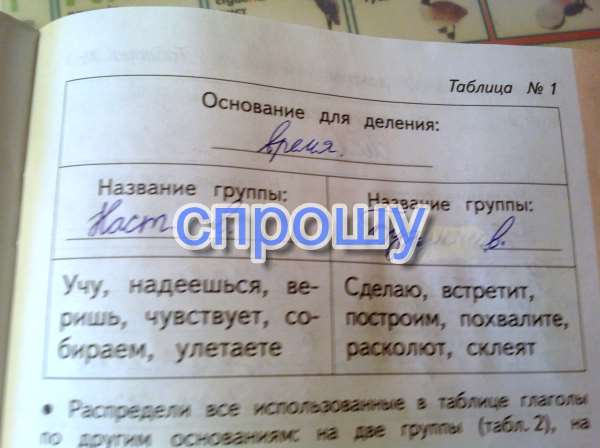 Таблица № 1
Основание для деления:
время.
Название группы:
Наст
Название группы:
в.
спрошу
Учу, надеешься, ве-
ришь, чувствует, со-
бираем, улетаете
Сделаю, встретит,
построим, похвалите,
расколют, склеят
• Распредели все использованные в таблице глаголы
по другим основаниям: на две группы (табл. 2), на